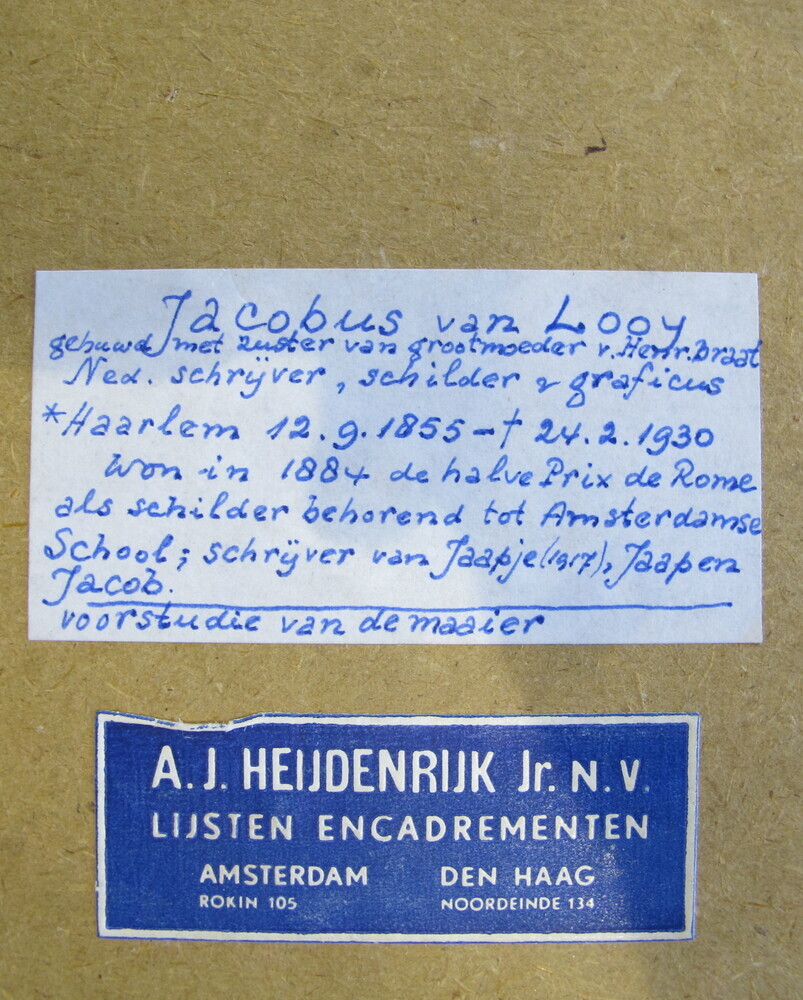 Jacobus van Looy
gehuwd met zuster van grootmoeder v. Henr. Braat
Ned. schrijver, schilder & graficus
*Haarlem 12.9.1855 - † 24.2.1930
Won in 1884 de halve Prix de Rome
als schilder behorend tot Amsterdamse
School; schrijver van Jaapje (1917), Jaap en
Jacob.
voorstudie van de maaier
A. J. HEIJDENRIJK Jr. N. V.
LIJSTEN ENCADREMENTEN
AMSTERDAM DEN HAAG
ROKIN 105 NOORDEINDE 134